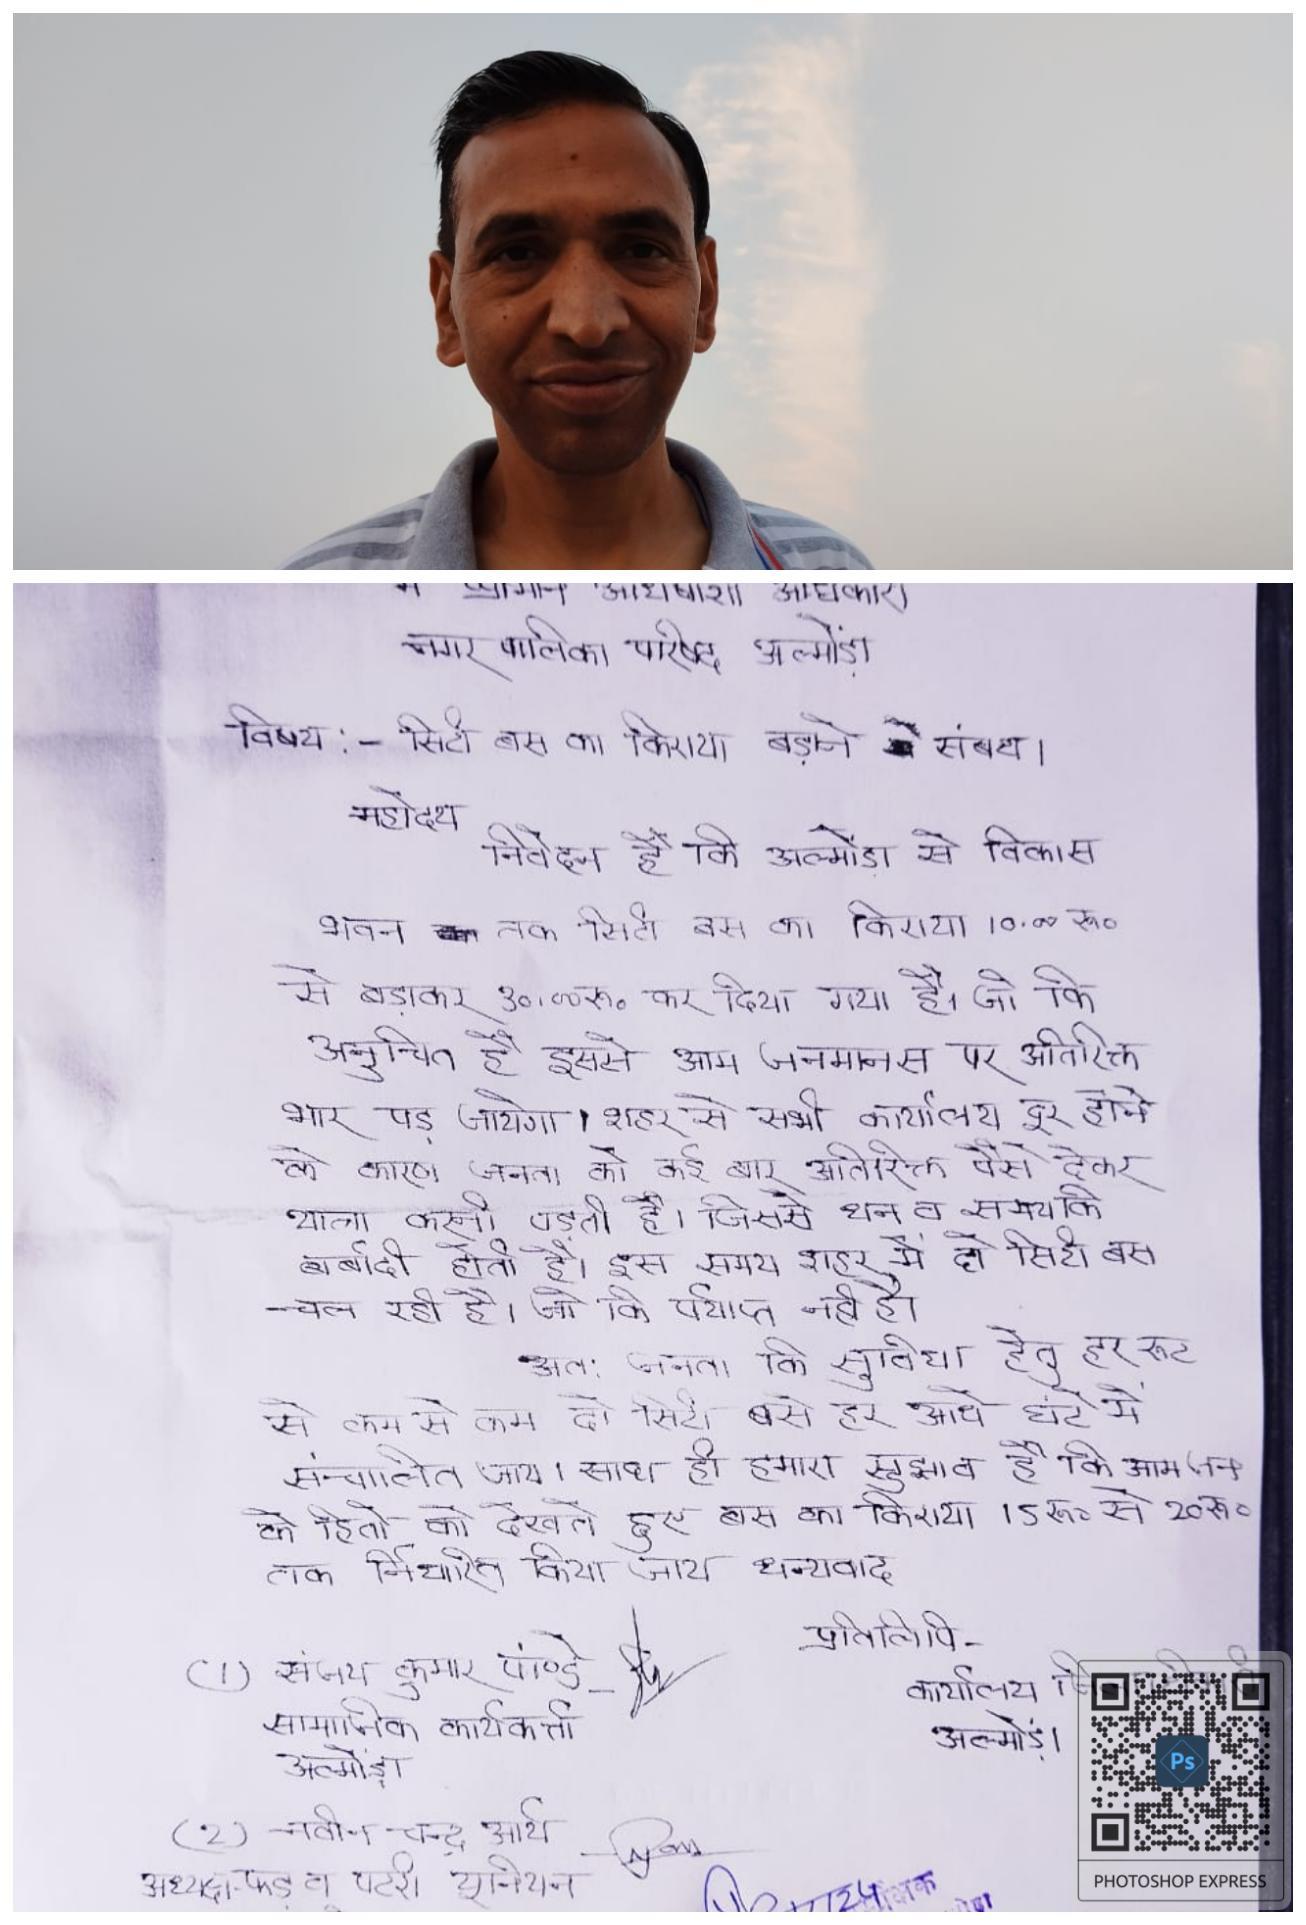 श्रीमान अधिशासी अधिकारी
नगर पालिका परिषद अल्मोड़ा
विषय :- सिटी बस का किराया बड़ाने संबध।
महोदय
निवेदन है कि अल्मोड़ा से विकास
भवन तक सिटी बस का किराया 10.00 रू०
से बड़ाकर 30.00रू० कर दिया गया है। जो कि
अनुचित है इससे आम जनमानस पर अतिरिक्त
भार पड़ जायेगा। शहर से सभी कार्यालय दूर होने
के कारण जनता को कई बार अतिरिक्त पैसे देकर
यात्रा करनी पड़ती है। जिससे धन व समय कि
बर्बादी होती है। इस समय शहर में दो सिटी बस
चल रही है। जो कि पर्याप्त नही है।
अतः जनता कि सुविधा हेतु हर रूट
से कम से कम दो सिटी बसे हर आधे घंटे में
संचालित जाय। साथ ही हमारा सुझाव है कि आम जन
के हितो को देखते हुए बस का किराया 15रू० से 20रू०
तक निर्धारित किया जाय धन्यवाद
प्रतिलिपि-
(1) संजय कुमार पाण्डे
कार्यालय
सामाजिक कार्यकर्त्ता
अल्मोड़ा
अल्मोड़ा
(2) नवीन चन्द्र आर्य
अध्यक्ष फड़ व पटरी यूनियन
Ps
PHOTOSHOP EXPRESS